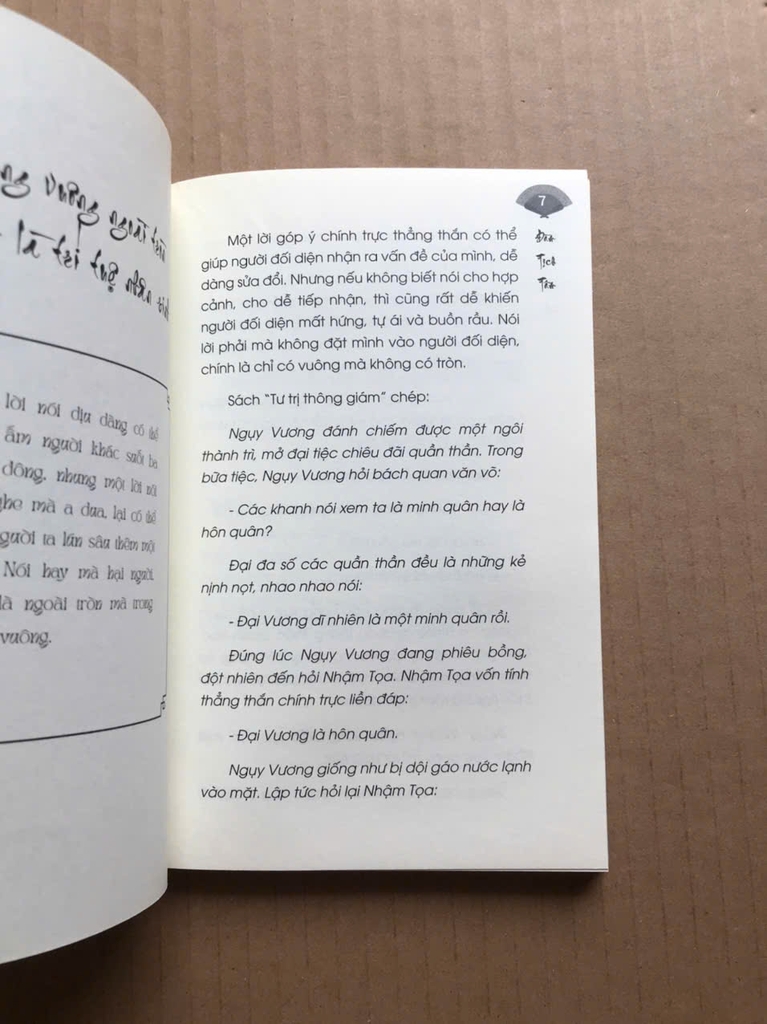 Vuông ngoài tròn
là trí tuệ nhân sinh
lời nói dịu dàng có thể
ấm người khác suốt ba
đông, nhưng một lời nói
nghe mà a dua, lại có thể
người ta lún sâu thêm một
Nói hay mà hại người,
là ngoài tròn mà trong
vuông.
7
Một lời góp ý chính trực thẳng thắn có thể
giúp người đối diện nhận ra vấn đề của mình, dễ
dàng sửa đổi. Nhưng nếu không biết nói cho hợp
cảnh, cho dễ tiếp nhận, thì cũng rất dễ khiến
người đối diện mất hứng, tự ái và buồn rầu. Nói
lời phải mà không đặt mình vào người đối diện,
chính là chỉ có vuông mà không có tròn.
Sách "Tư trị thông giám" chép:
Ngụy Vương đánh chiếm được một ngôi
thành trì, mở đại tiệc chiêu đãi quần thần. Trong
bữa tiệc, Ngụy Vương hỏi bách quan văn võ:
- Các khanh nói xem ta là minh quân hay là
hôn quân?
Đại đa số các quần thần đều là những kẻ
nịnh nọt, nhao nhao nói:
- Đại Vương dĩ nhiên là một minh quân rồi.
Đúng lúc Ngụy Vương đang phiêu bồng,
đột nhiên đến hỏi Nhậm Tọa. Nhậm Tọa vốn tính
thẳng thắn chính trực liền đáp:
- Đại Vương là hôn quân.
Ngụy Vương giống như bị dội gáo nước lạnh
vào mặt. Lập tức hỏi lại Nhậm Tọa: